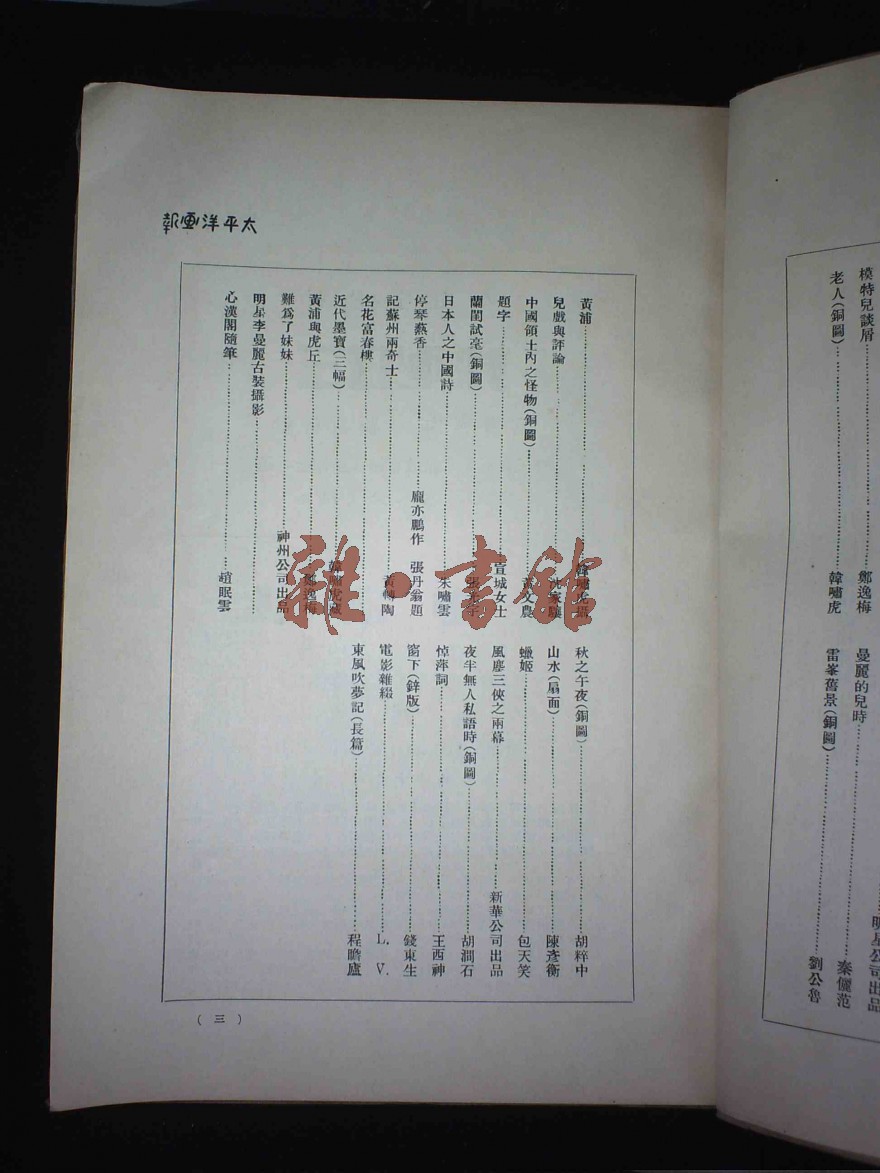 模特兒談屑 鄭逸梅
老人(銅圖) 韓嘯虎
明星公司出品
曼麗的兒時 秦儷范
雷峯舊景(銅圖) 劉公魯
太平洋畫報
黃浦 嘯虎攝
兒戲與評論
中國領土內之怪物(銅圖) 黃文農
題字 宣城女士
蘭閨試毫(銅圖)
日本人之中國詩 朱嘯雲
停琴爇香 龐亦鵬作 張丹翁題
記蘇州兩奇士 黃轉陶
名花富春樓
近代墨寶(三幅) 韓嘯虎藏
黃浦與虎丘 鄭逸梅
難爲了妹妹 神州公司出品
明星李曼麗古裝攝影
心漢閣隨筆 趙眠雲
秋之午夜(銅圖) 胡粹中
山水(扇面) 陳彥衡
蠟姬 包天笑
風塵三俠之兩幕 新華公司出品
夜半無人私語時(銅圖) 胡澗石
悼萍詞 王酉神
窗下(鋅版) 錢東生
電影雜綴 L. V.
東風吹夢記(長篇) 程瞻廬
(三)
雜·書館